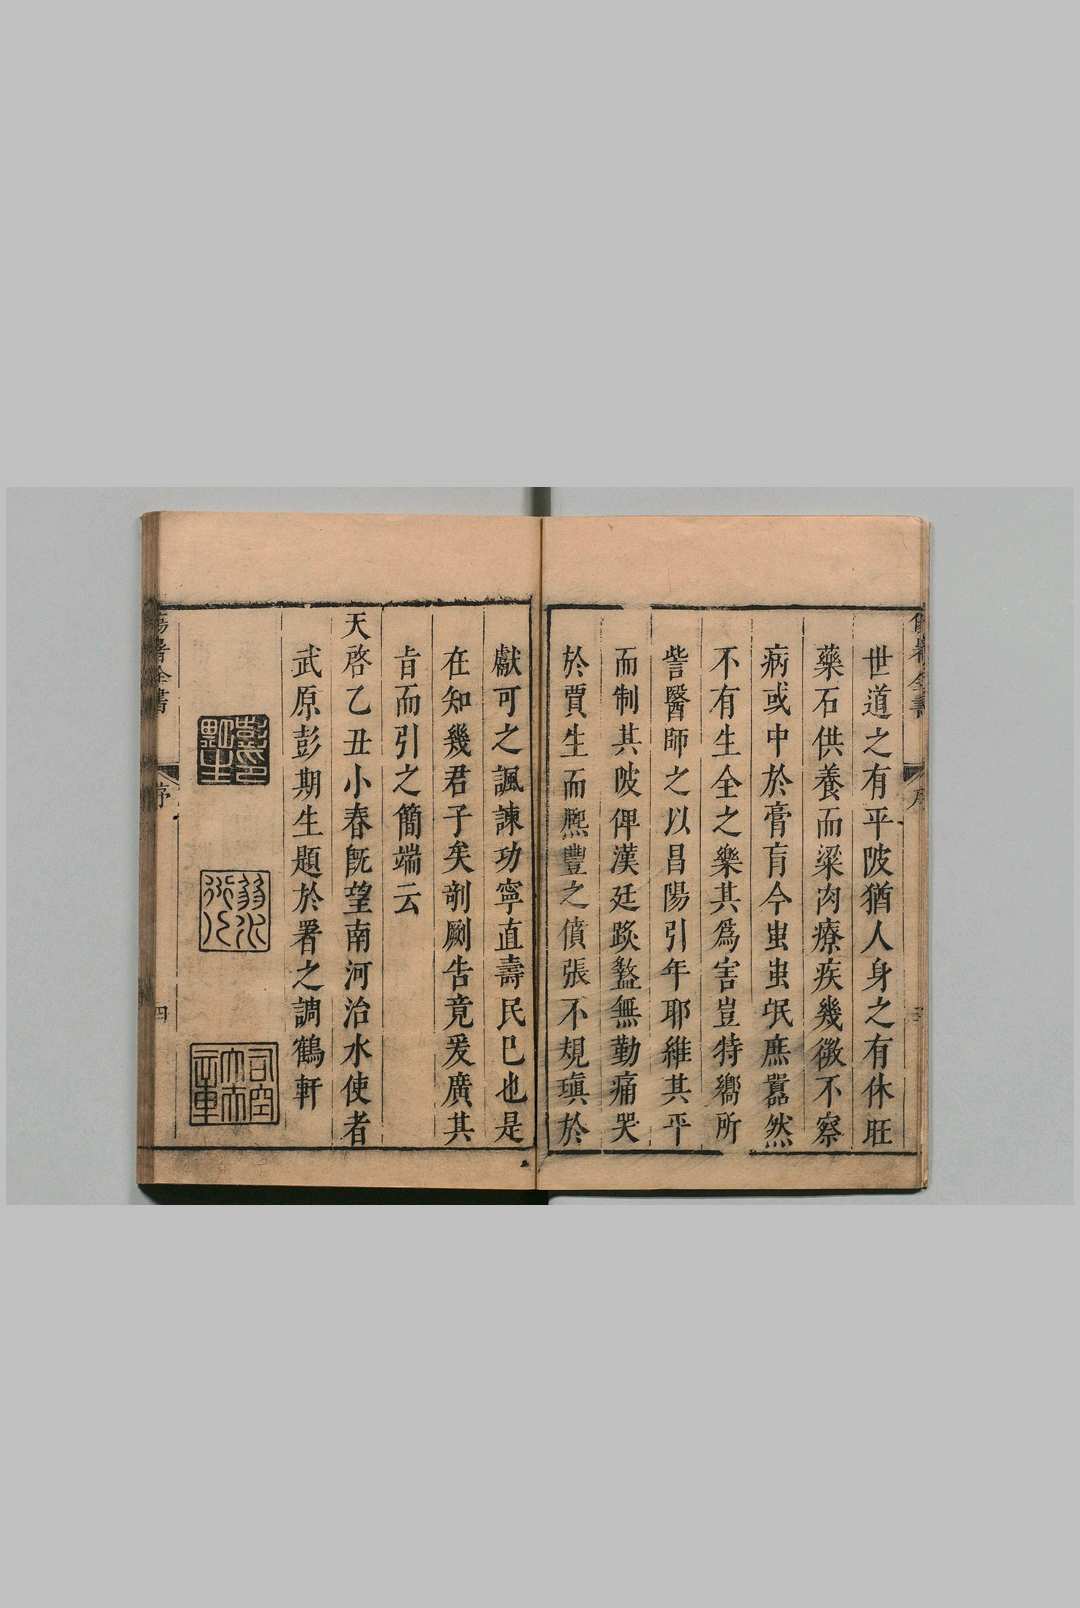 世道之有平陂猶人身之有休旺
藥石供養而粱肉療疾幾微不察
病或中於膏肓今蚩蚩氓庶囂然
不有生全之樂其爲害豈特嚮所
訾醫師之以昌陽引年耶維其平
而制其陂俾漢廷跌盭無勤痛哭
於賈生而熈豐之僨張不規瑱於
獻可之諷諫功寧直壽民已也是
在知幾君子矣剞劂告竟爰廣其
旨而引之簡端云
天啓乙丑小春旣望南河治水使者
武原彭期生題於署之調鶴軒
傷暑全書
序
四